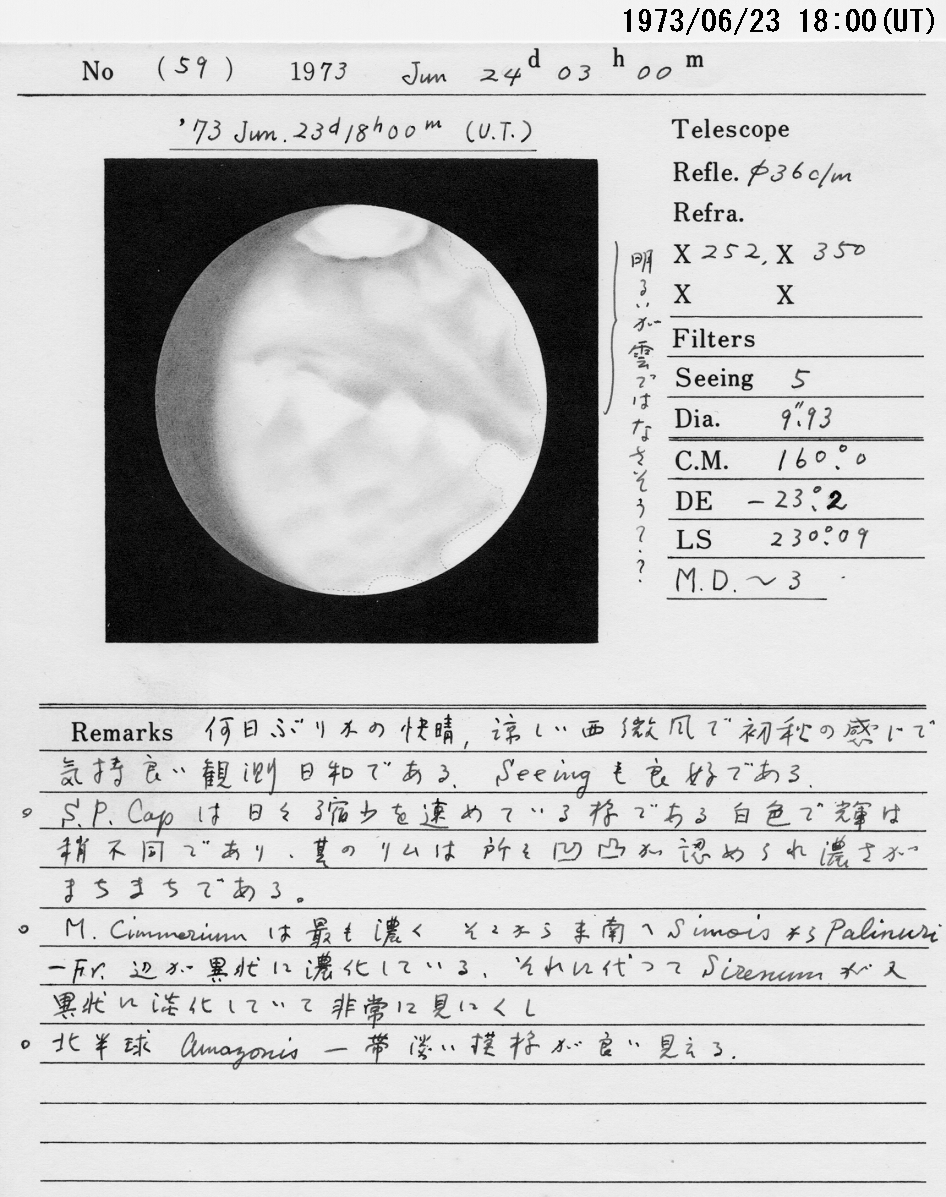 1973/06/23 18:00(UT)
No (59) 1973 Jun 24d 03h 00m
'73 Jun. 23d18h00m (U.T.)
Telescope
Refle. φ36c/m
Refra.
X 252, X 350
X X
Filters
Seeing 5
Dia. 9".93
C.M. 160°.0
DE -23°.2
LS 230°.09
M.D. ~3
明るいが雲ではなさそう??
Remarks 何日ぶりかの快晴, 涼しい西微風で初秋の感じで
気持良い観測日和である. Seeingも良好である.
○ S.P. Capは日々縮少を速めている様である白色で輝は
稍不同であり、其のリムは所々凹凸が認められ濃さが
まちまちである。
○ M. Cimmeriumは最も濃く そこから東南へSimoisからPalinuri
-Fr. 辺が異状に濃化している、それに代ってSirenumが又
異状に淡化していて非常に見にくし
○ 北半球 Amazonis 一帯淡い模様が良い見える.